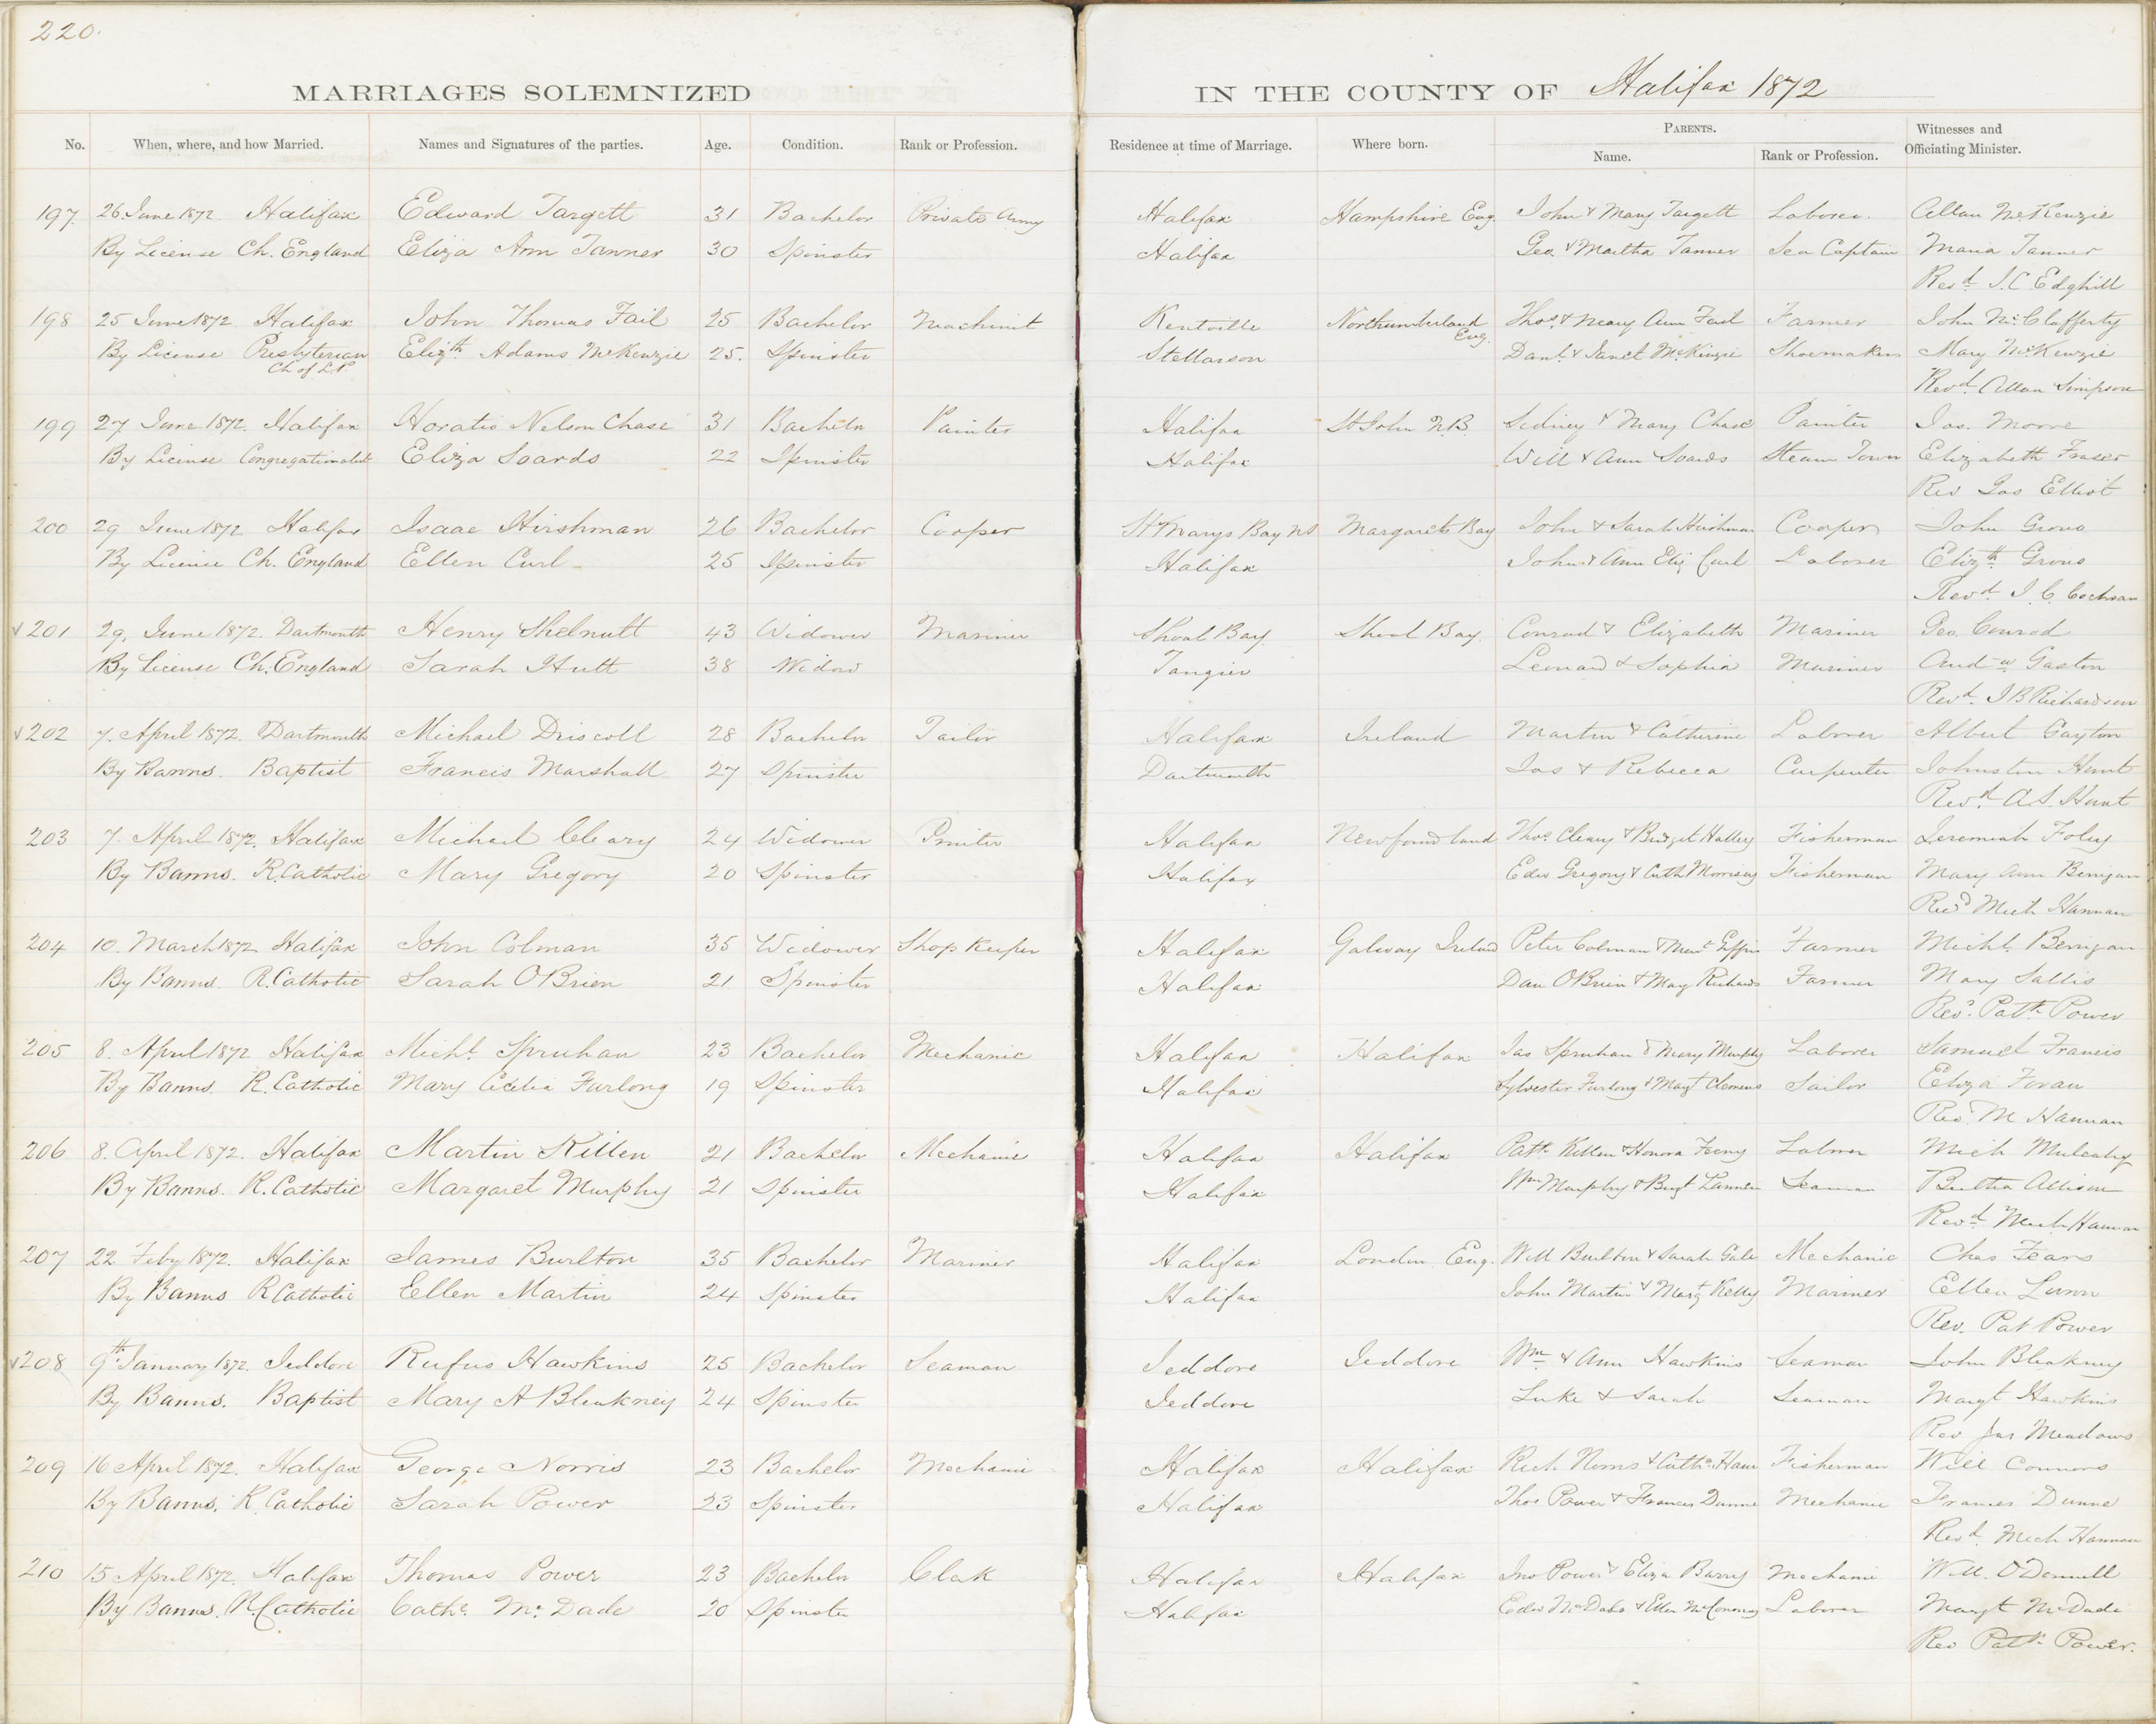 220.
MARRIAGES SOLEMNIZED IN THE COUNTY OF Halifax 1872
No. When, where, and how Married. Names and Signatures of the parties. Age. Condition. Rank or Profession. Residence at time of Marriage. Where born. PARENTS. Name. Rank or Profession. Witnesses and Officiating Minister.
197. 26. June 1872. Halifax Edward Targett 31 Bachelor Private Army Halifax Hampshire Eng. John & Mary Targett Laborer. Allan McKenzie
By License Ch. England Eliza Ann Tanner 30 Spinster Halifax Geo. & Martha Tanner Sea Captain Maria Tanner
Revd. J. C Edghill
198 25 June 1872. Halifax John Thomas Fail 25 Bachelor Machinist Kentville Northumberland Eng. Thos. & Mary Ann Fail Farmer John McClafferty
By License Presbyterian Ch of L.P. Elizth Adams McKenzie 25. Spinster Stellarson Danl. & Janet McKinzie Shoemaker Mary McKenzie
Revd. Allan Simpson
199 27 June 1872. Halifax Horatio Nelson Chase 31 Bachelor Painter Halifax St John N.B. Sidney & Mary Chase Painter Jas. Moore
By License Congregationalist Eliza Soards 22 Spinster Halifax Will & Ann Soards Steam Town Elizabeth Fraser
Rev Jas Elliot
200 29 June 1872 Halifax Isaac Hirshman 26 Bachelor Cooper St Marys Bay NS Margarets Bay John & Sarah Hirshman Cooper John Grono
By License Ch. England Ellen Curl 25 Spinster Halifax John & Ann Eliz Curl Laborer Elizth Grono
Revd. J. C. Cochran
√ 201 29, June 1872. Dartmouth Henry Shelnutt 43 Widower Mariner Shoal Bay Shoal Bay. Conrad & Elizabeth Mariner Geo. Conrod
By License Ch. England Sarah Hutt 38 Widow Tangier Leonard & Sophia Mariner And-w Gaston
Revd. J B Richardson
√ 202 7. April 1872. Dartmouth Michael Driscoll 28 Bachelor Tailor Halifax Ireland Martin & Catherine Laborer Albert Gayton
By Banns. Baptist Francis Marshall 27 Spinster Dartmouth Jas & Rebecca Carpenter Johnston Hunt
Revd. A. S. Hunt
203 7. April 1872. Halifax Michael Cleary 24 Widower Printer Halifax Newfoundland Thos. Cleary & Bridget Hallery Fisherman Jeremiah Foley
By Banns. R. Catholic Mary Gregory 20 Spinster Halifax Edw Gregory & Cath Morrisey Fisherman Mary Ann Benigan
Revd Mich Hannan
204 10. March 1872 Halifax John Colman 35 Widower Shop Keeper Halifax Galway Ireland Peter Colman & Farmer Michl. Benigan
By Banns. R. Catholic Sarah OBrien 21. Spinster Halifax Dan OBrien & Mary Richards Farmer Mary Sallis
Revd. Patk. Power
205 8. April 1872 Halifax Michl. Spruhan 23 Bachelor Mechanic Halifax Halifax Jas Spruhan & Mary Murphy Laborer Samuel Francis
By Banns. R. Catholic Mary Cicelia Furlong 19 Spinster Halifax Sylvester Furlong & Magt Clemens Sailor Eliza Foran
Revd. M Hannan
206 8. April 1872. Halifax Martin Killen 21 Bachelor Mechanic Halifax Halifax Patk. Killen & Honora Feeny Laborer Mich Mulcahy
By Banns. R. Catholic Margaret Murphy 21 Spinster Halifax Wm Murphy & Bugt Seaman Allison
Revd Mich Hannan
207 22 Feby 1872. Halifax James Burlton 35 Bachelor Mariner Halifax London Eng. Will Burlton & Sarah Gale Mechanic Chas Fears
By Banns R Catholic Ellen Martin 24 Spinster Halifax John Martin & Margt Kelly Mariner Ellen Lunn
Rev. Pat Power
√ 208 9th January 1872. Jeddore Rufus Hawkins 25 Bachelor Seaman Jeddore Jeddore Wm & Ann Hawkins Seaman John Bleakney
By Banns. Baptist Mary A Bleakney 24 Spinster Jeddore Luke & Sarah Seaman Margt Hawkins
Rev Jas Meadows
209 16 April 1872. Halifax George Norris 23 Bachelor Mechanic Halifax Halifax Rich Norris & Cath. Fisherman Will Connors
By Banns. R. Catholic Sarah Power 23 Spinster Halifax Thos Power & Frances Dunne Mechanic Frances Dunne
Revd. Mich Hannan
210 15 April 1872. Halifax Thomas Power 23 Bachelor Clerk Halifax Halifax Jno Power & Eliza Barry Mechanic Will. O'Donnell
By Banns. R. Catholic Cathe. Mc Dade 20 Spinster Halifax Edw McDade & Ellen Laborer Margt McDade
Rev Patk. Power.